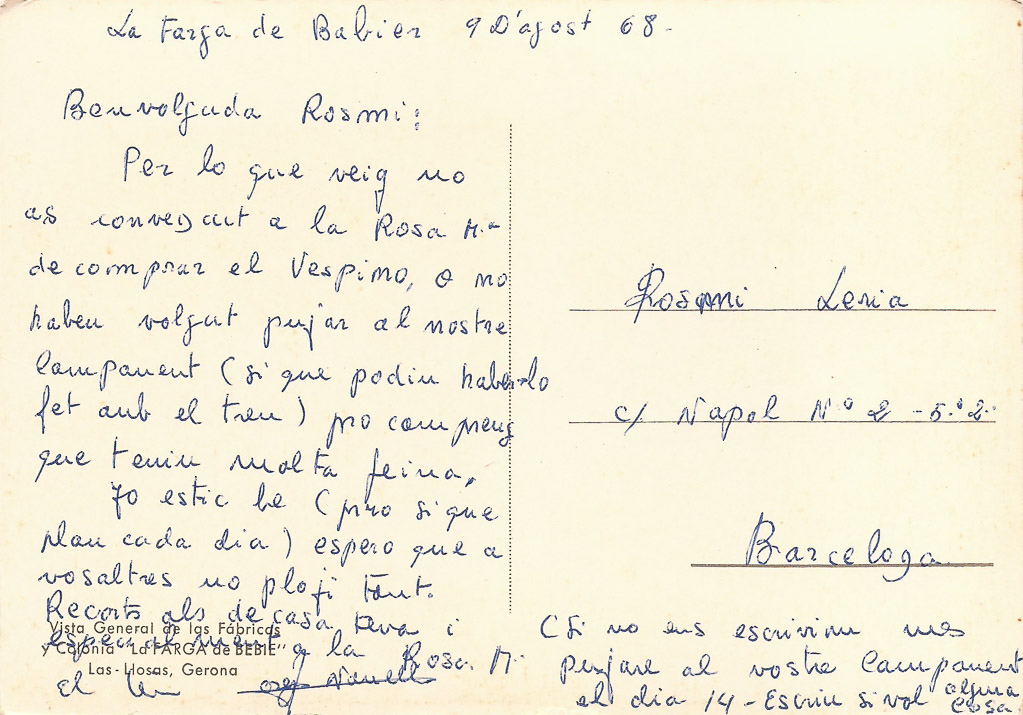 La Farga de Babier 9 D'agost 68.
Benvolguda Rosmi:
Per lo que veig no
as convençut a la Rosa Mª
de comprar el Vespino, o no
habeu volgut pujar al nostre
Campament (si que podiu haber-lo
fet amb el tren) pro compreng
que teniu molta feina.
Jo estic be (pro si que
plou cada dia) espero que a
vosaltres no ploji tant.
Recorts als de casa teva i
especialment a la Rosa. M.
el teu
Vista General de las Fábricas
y Colonia "La FARGA de BEBIÉ"
Las-Llosas, Gerona
Rosmi Leria
c/ Napol Nº 2 - 5º 2ª
Barcelona
(Si no ens escrivim mes
pujare al vostre Campament
el dia 14 - Escriu si vol alguna
cosa